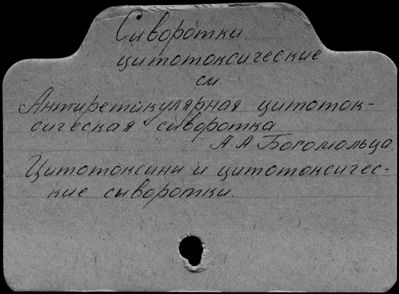 Сиворотки
цитотоксические
см.
Антиретикулярная цитоток-
сическая сиворотка
А.А Богомольца.
Цитотоксини и цитотоксичес-
кие сыворотки.